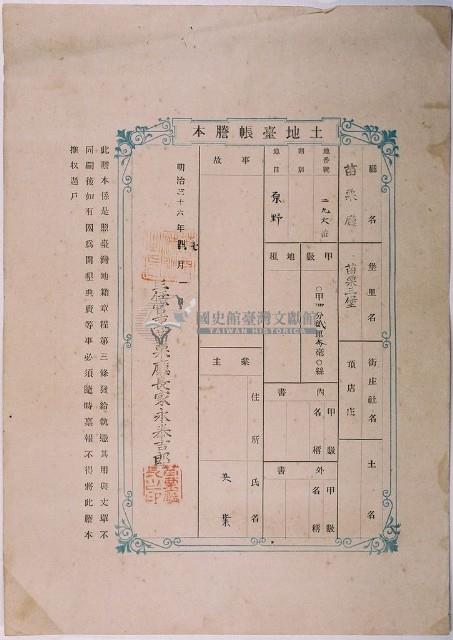 土地臺帳謄本
廳名
苗栗廳
堡里名
苗栗三堡
街庄社名
頂店庄
土名
地番號
二九六番
等則
地目
原野
甲數
〇甲四分貳厘
地租
內書
甲數
名稱
外書
甲數
名稱
事故
業主
住所
氏名
明治三十六年
七月一
苗栗廳長家永泰吉郎
苗栗廳長之印
此謄本係是照臺灣地籍章程第三條發給執憑其用與丈單不
同嗣後如有因爲開墾典賣等事必須隨時稟報不得將此謄本
擅改過戶
國史館臺灣文獻館
TAIWAN HISTORICA